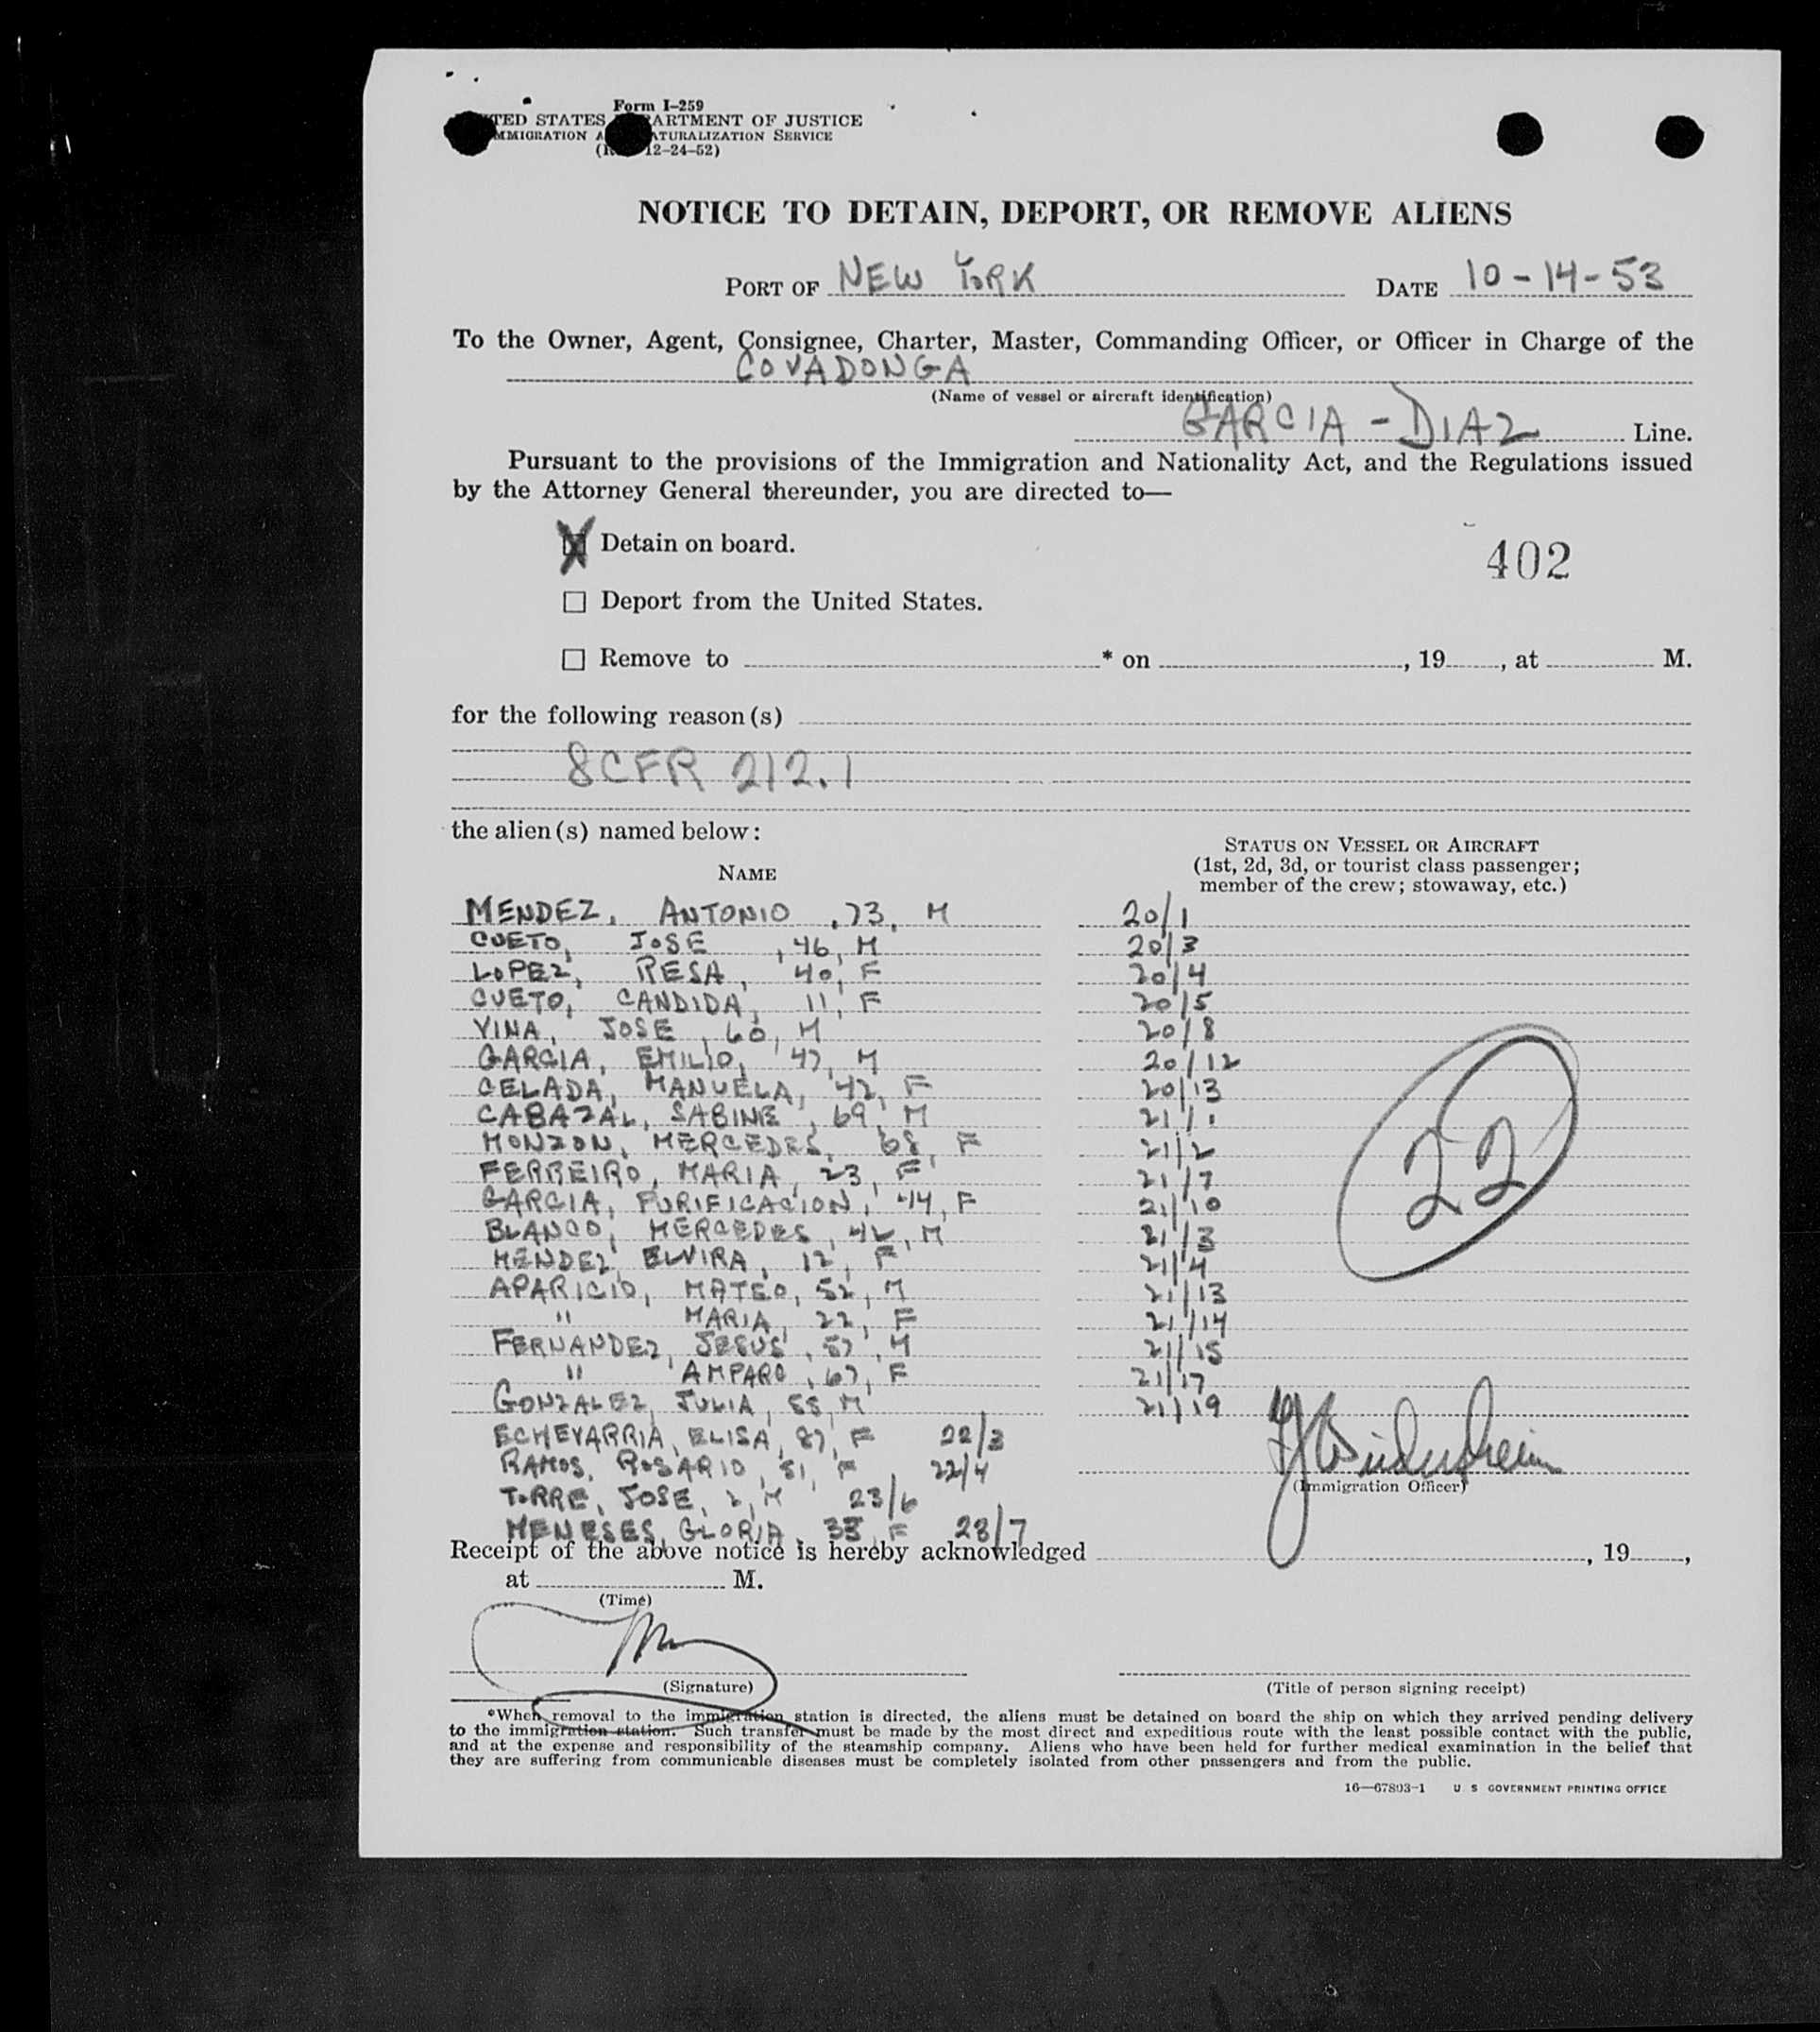 Form I-259
TED STATES ARTMENT OF JUSTICE
MMIGRATION A ATURALIZATION SERVICE
12-24-52)
NOTICE TO DETAIN, DEPORT, OR REMOVE ALIENS
PORT OF NEW YORK DATE 10-14-53
To the Owner, Agent, Consignee, Charter, Master, Commanding Officer, or Officer in Charge of the
COVADONGA
(Name of vessel or aircraft identification)
GARCIA - DIAZ Line.
Pursuant to the provisions of the Immigration and Nationality Act, and the Regulations issued
by the Attorney General thereunder, you are directed to—
X Detain on board.
402
☐ Deport from the United States.
☐ Remove to * on , 19 , at M.
for the following reason(s)
8CFR 212.1
the alien(s) named below:
STATUS ON VESSEL OR AIRCRAFT
(1st, 2d, 3d, or tourist class passenger;
member of the crew; stowaway, etc.)
NAME
MENDEZ, ANTONIO, 73, M 20/1
CUETO, JOSE, 46, M 20/3
LOPEZ, RESA, 40, F 20/4
CUETO, CANDIDA, 11, F 20/5
VINA, JOSE, 60, M 20/8
GARCIA, EMILIO, 47, M 20/12
CELADA, MANUELA, 42, F 20/13
CABAZAL, SABINE, 69, M 21/1
MONZON, MERCEDES, 68, F 21/2
FERREIRO, MARIA, 23, F 21/7
GARCIA, PURIFICACION, 44, F 21/10
BLANCO, MERCEDES, 42, M 21/3
MENDEZ, ELVIRA, 12, F 21/4
APARICIO, MATEO, 52, M 21/13
" MARIA, 22, F 21/14
FERNANDEZ, JESUS, 57, M 21/15
" AMPARO, 67, F 21/17
GONZALEZ, JULIA, 55, M 21/19
22
ECHEVARRIA, ELISA, 87, F 22/3
RAMOS, ROSARIO, 51, F 22/4
(Immigration Officer)
TORRE, JOSE, 2, M 23/6
MENESES, GLORIA, 33, F 23/7
Receipt of the above notice is hereby acknowledged , 19 ,
at M.
(Time)
(Signature) (Title of person signing receipt)
*When removal to the immigration station is directed, the aliens must be detained on board the ship on which they arrived pending delivery
to the immigration station. Such transfer must be made by the most direct and expeditious route with the least possible contact with the public,
and at the expense and responsibility of the steamship company. Aliens who have been held for further medical examination in the belief that
they are suffering from communicable diseases must be completely isolated from other passengers and from the public.
16—67803-1 U. S GOVERNMENT PRINTING OFFICE